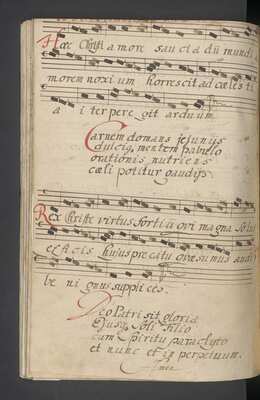 Hæc Christi amore saucia dū mundi
morem noxium horrescit ad cælesti
a iter peregit arduum
Carnem domans jejunijs
dulcig, mentem pabulo
orationis nutriens
cæli potitur gaudijs
Rex Christe virtus fortiū qui magna solus
efficis hujus precatu quæsumus audi
be nignus supplices.
Deo Patri sit gloria
Ejusq, Soli Filio
cum Spiritu paraclyto
et nunc et in perpetuum.
Amen